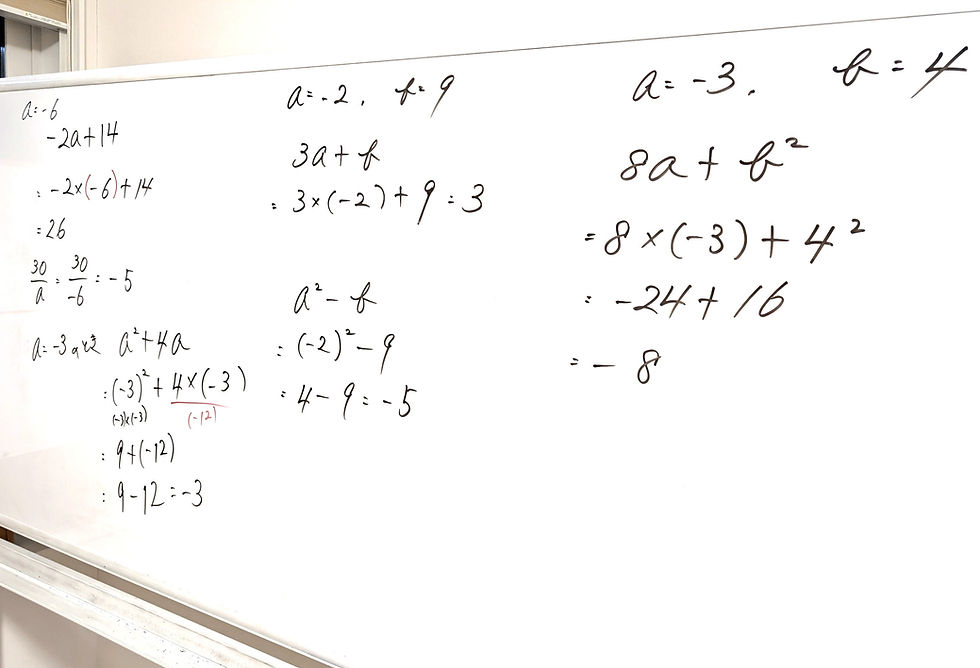 a=-6
-2a+14
=-2×(-6)+14
=26
30/a=30/-6=-5
a=-3のとき a²+4a
=(-3)²+4×(-3)
(-3)×(-3) (-12)
=9+(-12)
=9-12=-3
a=-2, b=9
3a+b
=3×(-2)+9=3
a²-b
=(-2)²-9
=4-9=-5
a=-3, b=4
8a+b²
=8×(-3)+4²
=-24+16
=-8